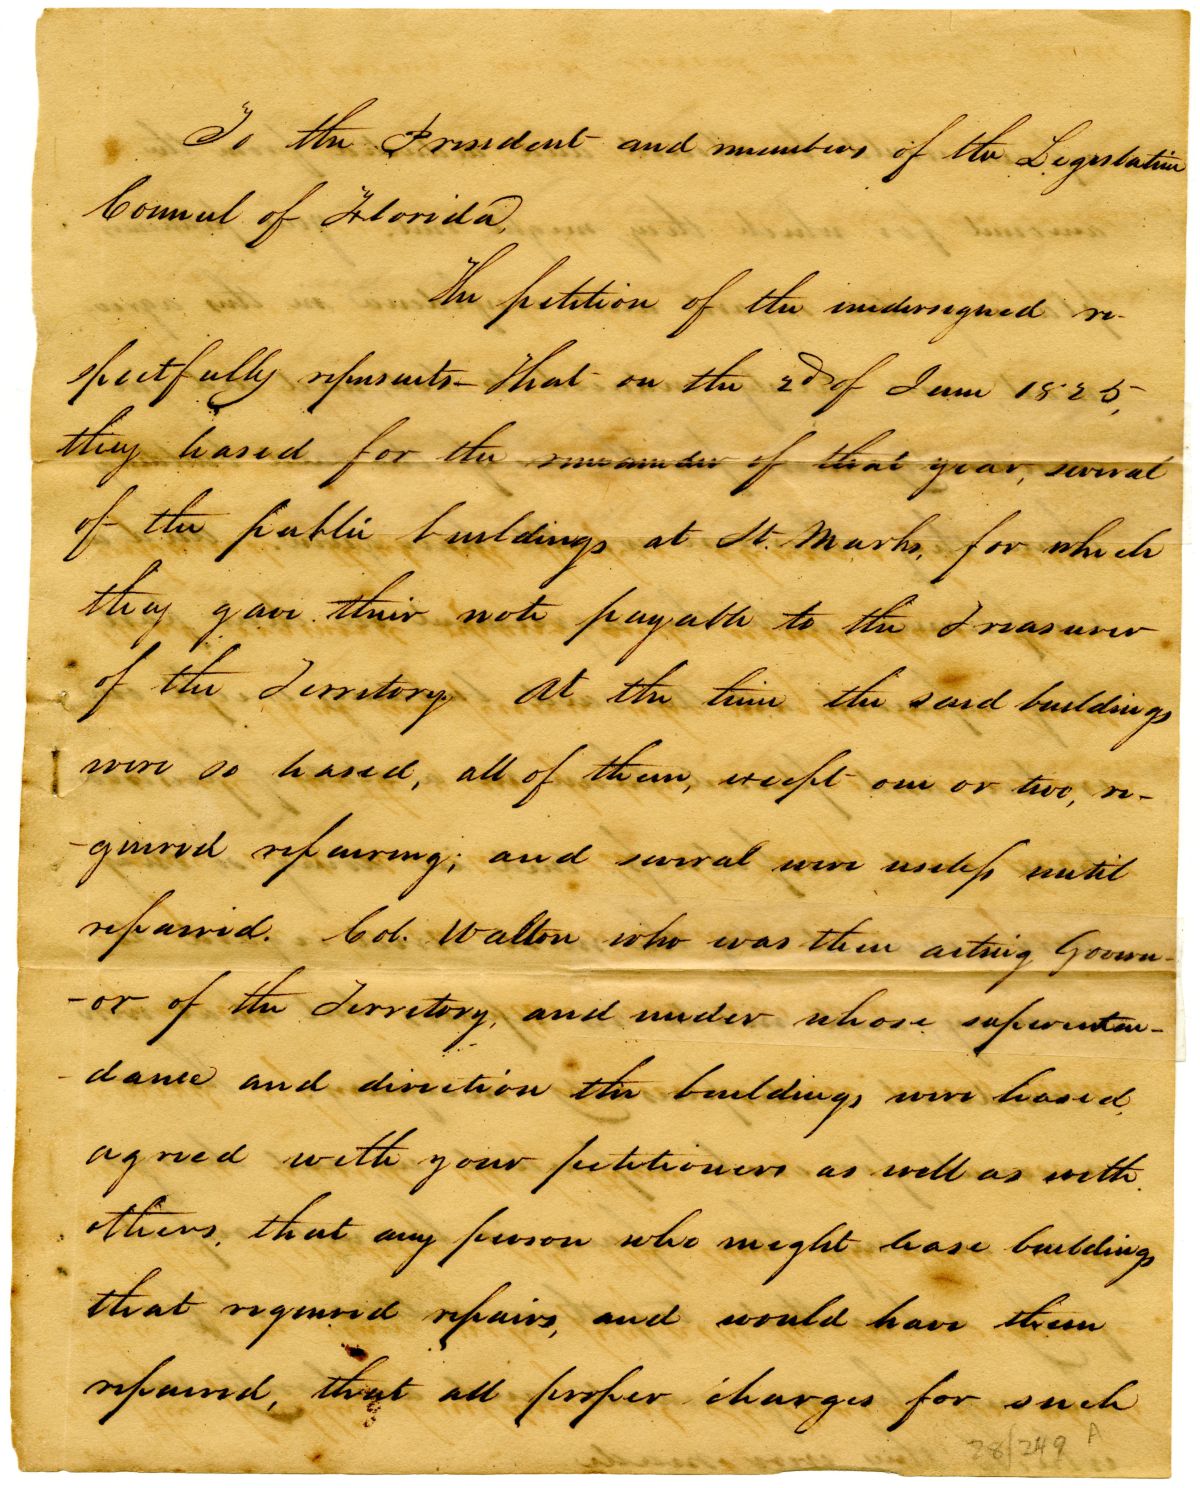 To the President and members of the Legislative
Council of Florida,
The petition of the undersigned re-
spectfully represents - that on the 2d of June 1825,
they leased for the remainder of that year, several
of the public buildings at St. Marks, for which
they gave their note payable to the Treasurer
of the Territory At the time the said buildings
were so leased, all of them, except one or two, re-
-quired repairing; and several were useless until
repaired. Col. Walton who was then acting Govern-
-or of the Territory, and under whose superinten-
-dance and direction the buildings were leased,
agreed with your petitioners as well as with
others, that any person who might lease buildings
that required repairs, and would have them
repaired, that all proper charges for such
28/249 A